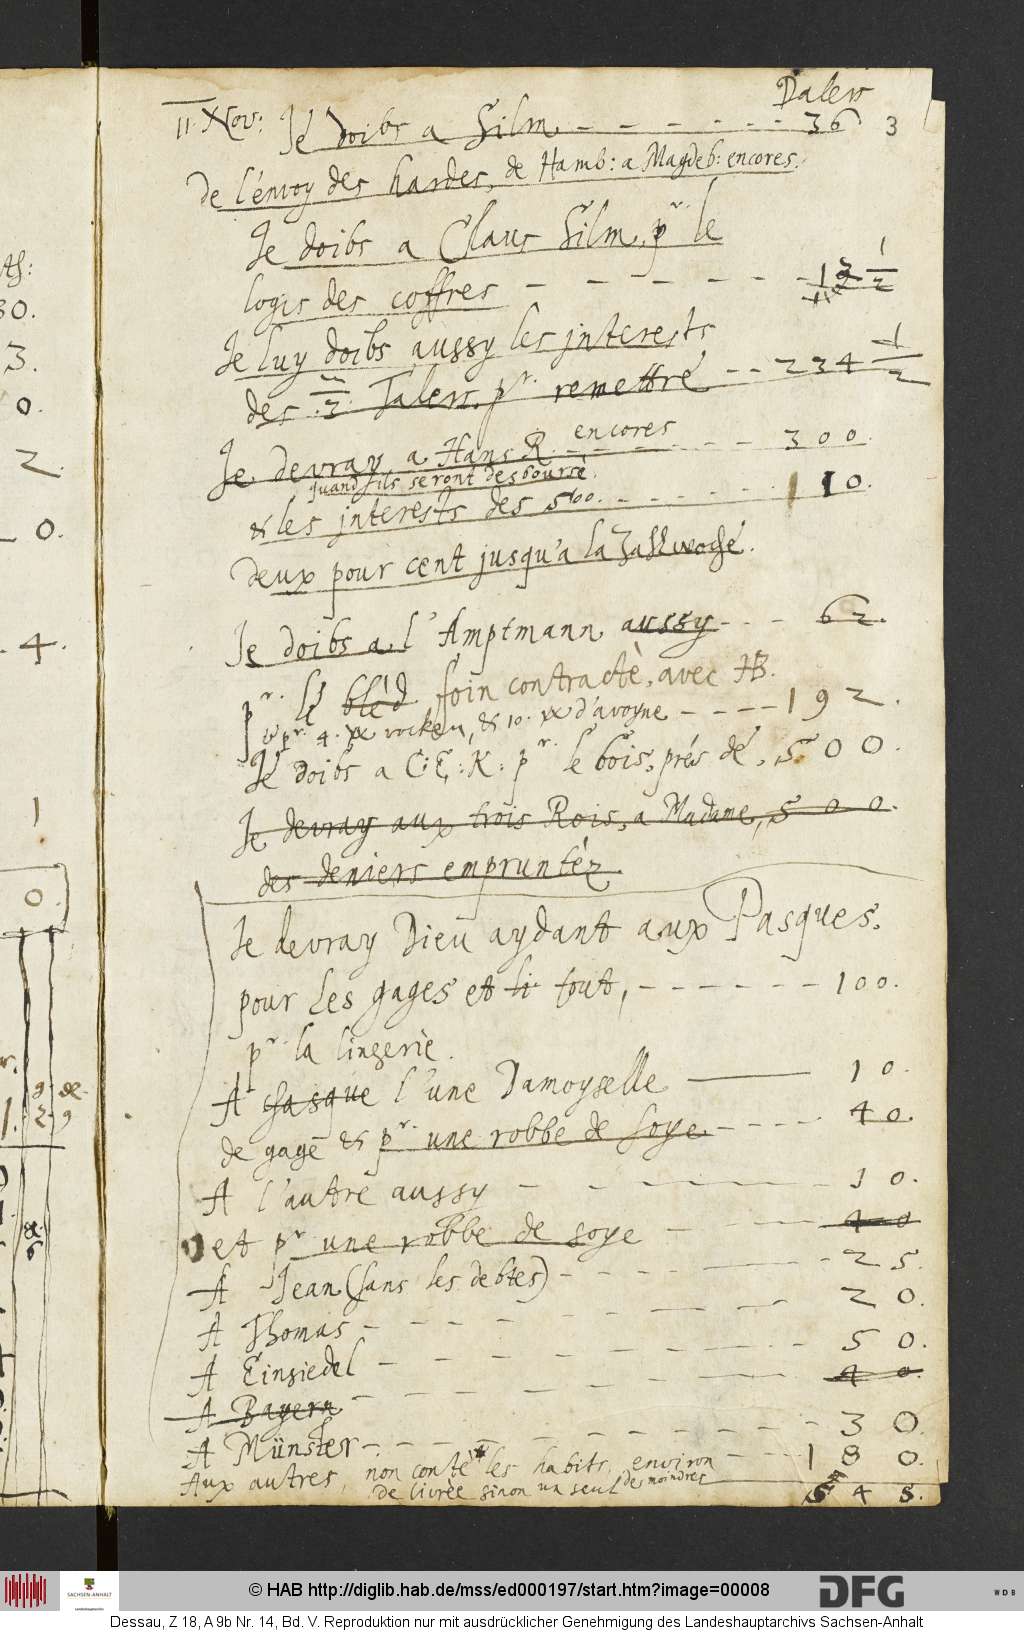 Dalers
II. Xbr: Je doibs a Silm. - - - - - - 36 3
De l'envoy des hardes, de Hamb: a Magdeb: encores.
Je doibs a Claus Silm, pr le
logis des coffres - - - - -
Je luy doibs aussy les interests
des Talers. pr. remettre -- 234 1/2
Je devray a Hans R encores - - - 300.
quand ils seront desboursè.
& les interests des 500. - - - - - 110.
deux pour cent jusqu'a la Zahlwoche.
Je doibs a l'Amptmann aussy - - - 62.
pr. le bled foin contractè, avec HB.
& pr. 4. rocken, & 10. d'avoyne - - - - 192.
Je doibs a C: E: K: pr. le bois, prés de, 500.
Je devray aux trois Rois, a Madame, 500.
des deniers empruntéz
Je devray Dieu aydant aux Pasques.
pour les gages et li tout, - - - - - - 100.
pr. la lingeriè.
A chasque l'une Damoyselle — 10.
de gage & pr. une robbe de soye - - - - 40.
A l'autre aussy - - - - - 10.
et pr une robbe de soye - - 40
A Jean (sans les debtes) - - - - 25.
A Thomas - - - - - 20.
A Einsiedel - - - - - 50.
A Bayern - - - - - 40.
A Münster - - - - - 30.
Aux autres, non conté les habits, environ - - 180.
de livrèe sinon un seul des moindres
545.
Ath:
30.
3.
0.
2.
0.
4.
1
0.
© HAB http://diglib.hab.de/mss/ed000197/start.htm?image=00008
SACHSEN-ANHALT
DFG
WDB
Dessau, Z 18, A 9b Nr. 14, Bd. V. Reproduktion nur mit ausdrücklicher Genehmigung des Landeshauptarchivs Sachsen-Anhalt